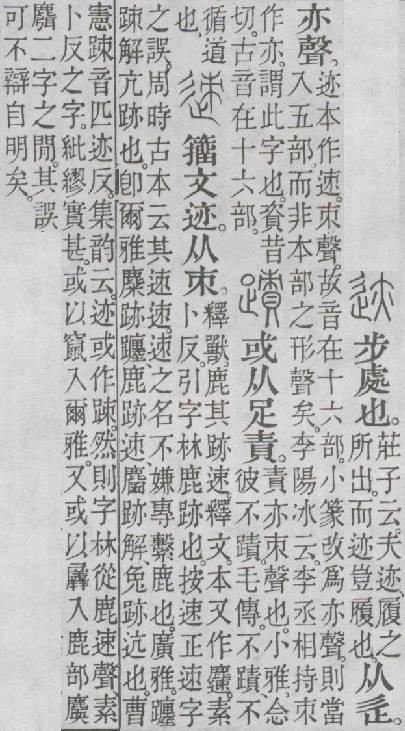 迹步處也。莊子云。夫迹、履之
所出。而迹豈履也。从辵。
亦聲。迹本作速。朿聲。故音在十六部。小篆改爲亦聲。則當
入五部。而非本部之形聲矣。李陽冰云。李丞相持束
作亦。謂此字也。資昔
切。古音在十六部。蹟或从足責。責亦朿聲也。小雅。念
彼不蹟。毛傳。不蹟、不
循道
也。速籒文迹。从朿。釋獸。鹿其跡速。釋文。本又作𪋝。素
卜反。引字林鹿跡也。按速正速字
之誤。周時古本云其速速。速之名不嫌專繫鹿也。廣雅。躔
踈解亢跡也。卽爾雅麋跡躔、鹿跡速、麕跡解、兔跡迒也。曹
憲踈音匹迹反。集韵云。迹或作踈。然則字林從鹿速聲、素
卜反之字。紕繆實甚。或以竄入爾雅。又或以入鹿部麌
麢二字之閒。其誤
可不辯自明矣。